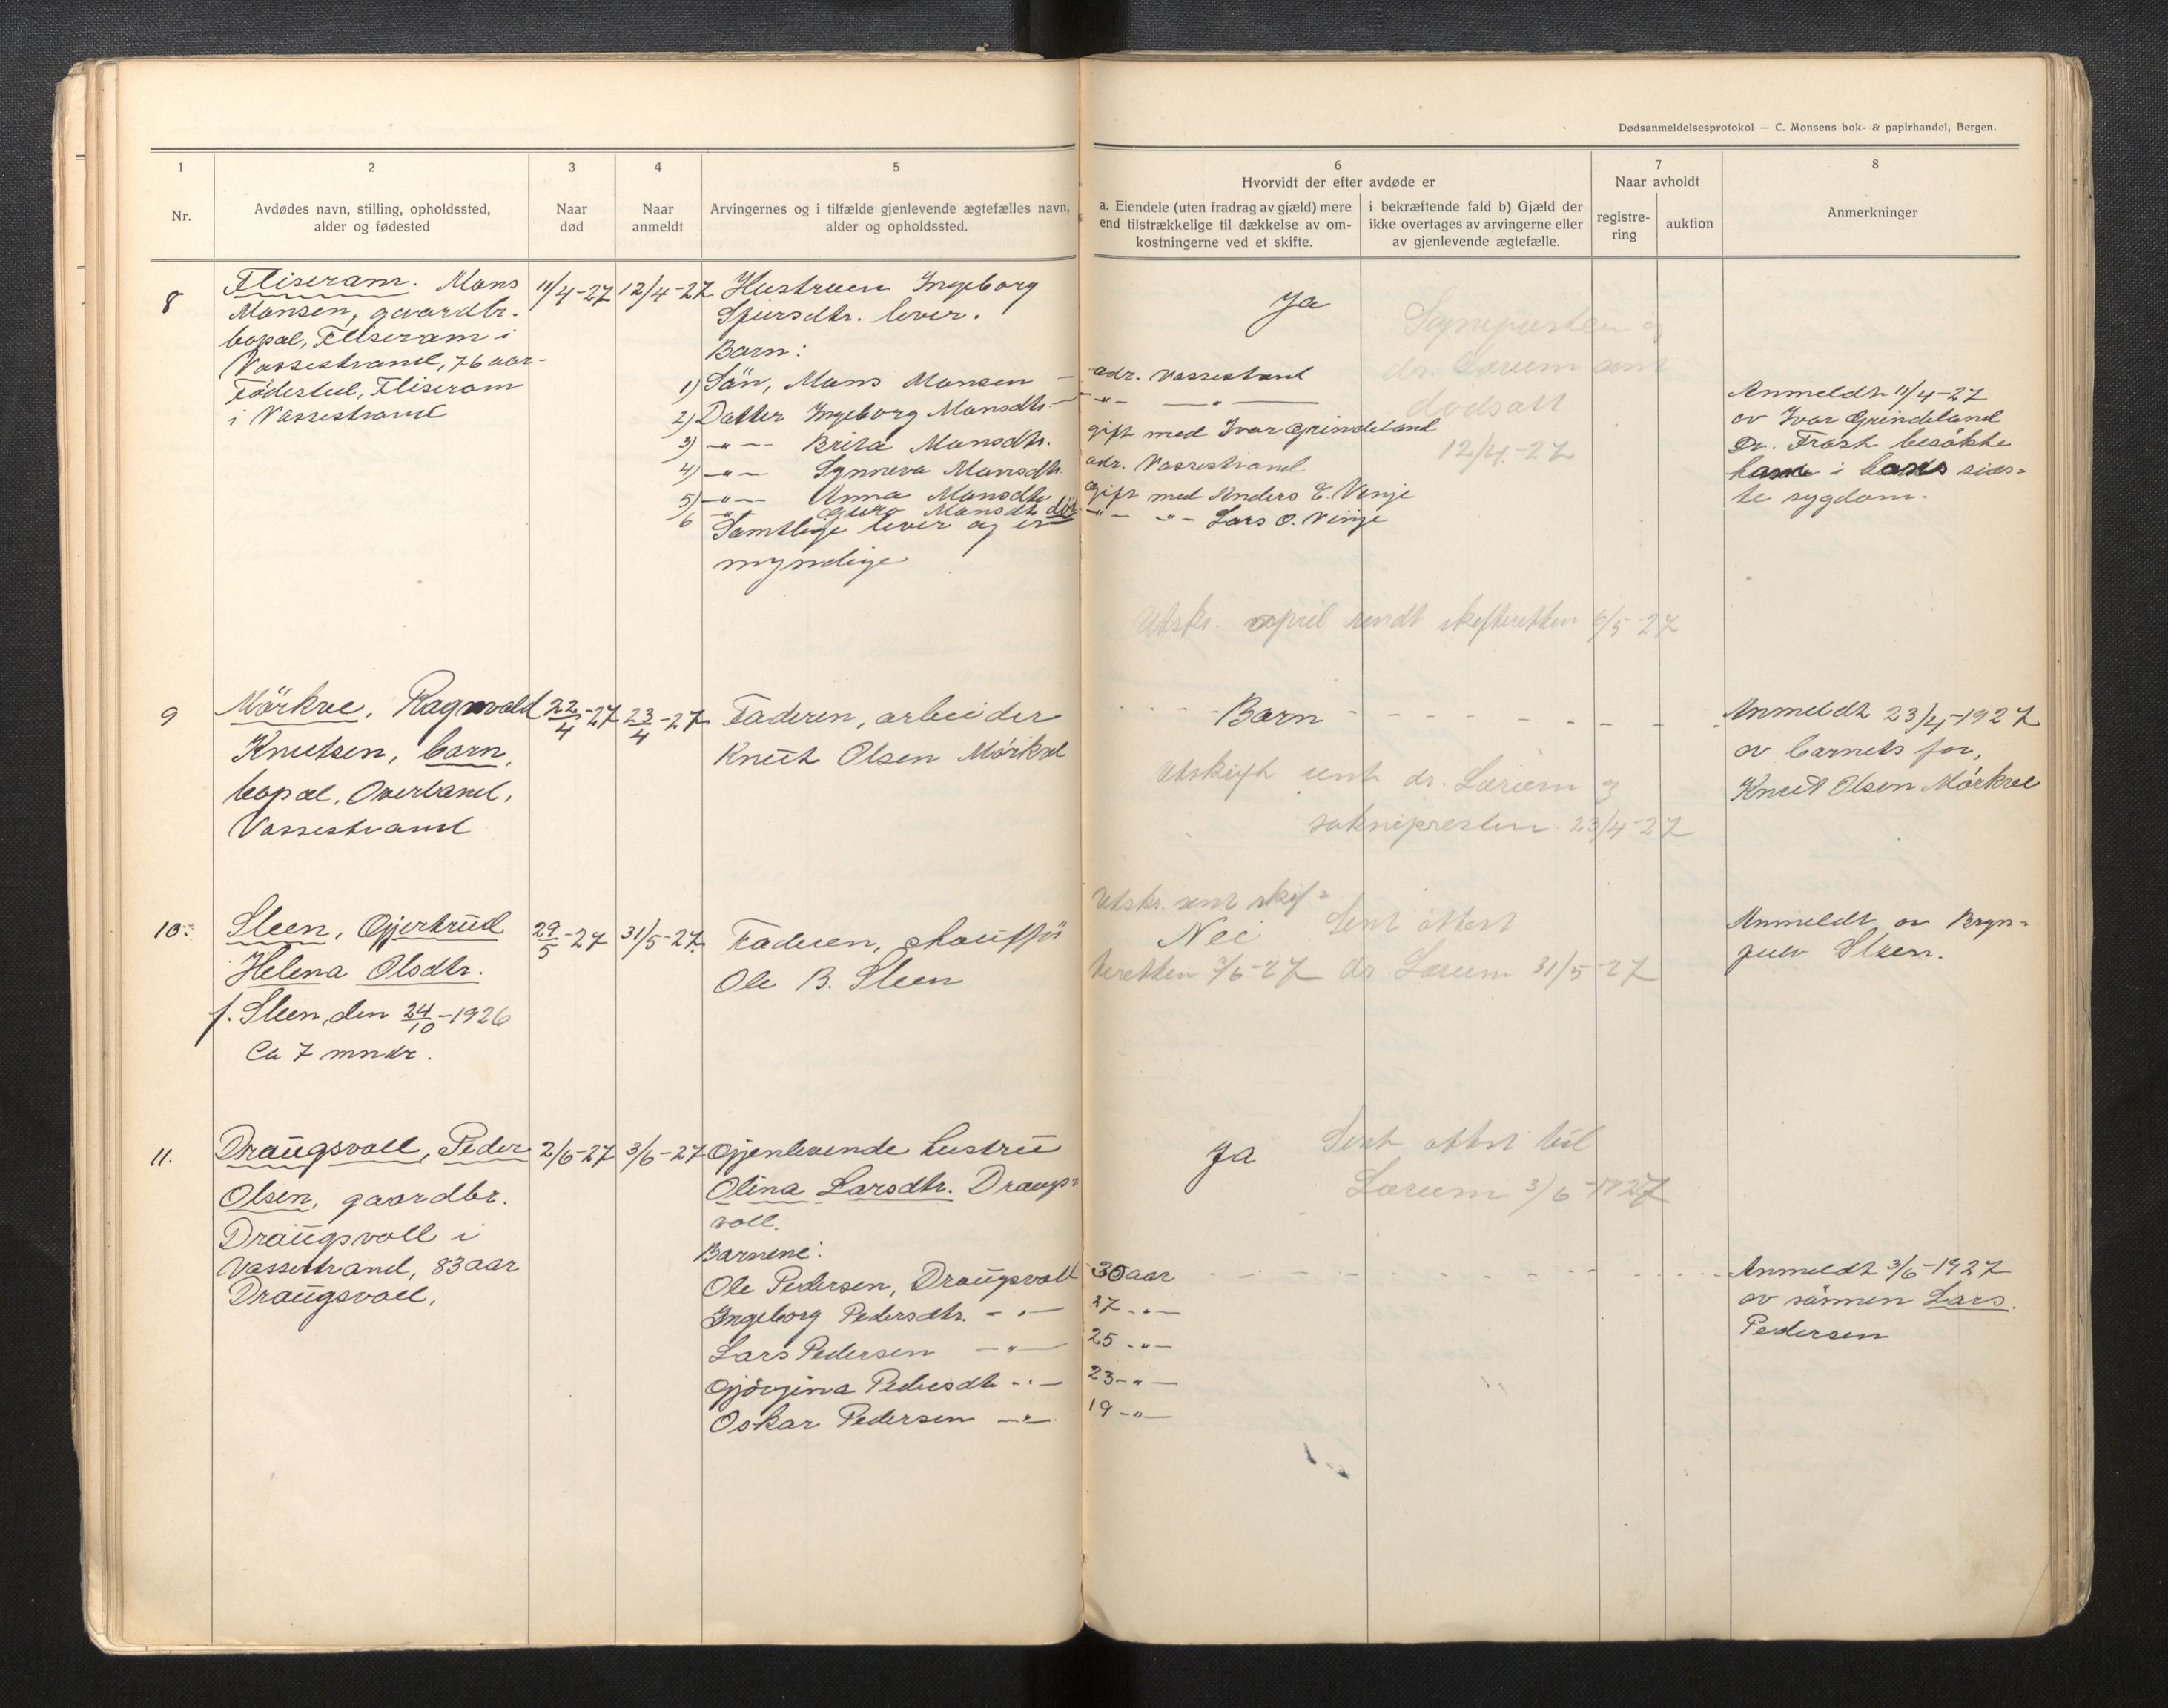 Dødsanmeldelsesprotokol — C. Monsens bok- & papirhandel, Bergen.
1 2 3 4 5 6 7 8
Nr.
Avdødes navn, stilling, opholdssted,
alder og fødested
Naar
død
Naar
anmeldt
Arvingernes og i tilfælde gjenlevende ægtefælles navn,
alder og opholdssted.
Hvorvidt der efter avdøde er
a. Eiendele (uten fradrag av gjæld) mere
end tilstrækkelige til dækkelse av om-
kostningerne ved et skifte.
i bekræftende fald b) Gjæld der
ikke overtages av arvingerne eller
av gjenlevende ægtefælle.
Naar avholdt
registre-
ring
auktion
Anmerkninger
8
Fliseram. Mons
Monsen, gaardbr.
bopæl, Fliseram i
Vossestrand, 76 aar-
Födested, Fliseram
i Vossestrand
11/4-27
12/4-27
Hustruen Ingeborg
Sjursdtr. lever.
Barn:
1) Sön, Mons Monsen — adr. Vossestrand
2) Datter Ingeborg Monsdtr. — -"- — " —
3) —"— Brita Monsdtr. gift med Ivar Grindeland
4) —"— Synneva Monsdtr. adr. Vossestrand
5) —"— Anna Monsdtr. Gift med Anders E. Vinje
6 —"— Guro Monsdtr. död —"— -"- Lars O. Vinje
Samtlige lever og er
myndige
Ja
Sogneprsten og
dr. Lærum sent
dödsatt
12/4-27
Anmeldt 11/4-27
av Ivar Grindeland
Dr. Frost besökte
ham i hans sids-
te sygdom.
Utskr. april sendt skifteretten 6/5-27
9
Mörkve, Ragnvald
Knutsen, barn,
bopæl, Överland,
Vossestrand
22/4-27
23/4-27
Faderen, arbeider
Knut Olsen Mörkve
Barn
Utskrift sent dr. Lærum og
soknepresten 23/4-27
Anmeldt 23/4-1927
av barnets far,
Knut Olsen Mörkve
10.
Sleen, Gjertrud
Helena Olsdtr.
f. Sleen, den 24/10-1926
Ca 7 mndr.
29/5-27
31/5-27.
Faderen, chauffør
Ole B. Sleen
Utskr. sent skif-
Nei
teretten 7/6-27
Sent attest
dr Lærum 31/5-27
Anmeldt av Bryn-
julv Sleen.
11.
Draugsvoll, Peder
Olsen, gaardbr.
Draugsvoll i
Vossestrand, 83 aar
Draugsvoll,
2/6-27
3/6-27
Gjenlevende hustru
Olina Larsdtr. Draugs-
voll.
Barnene:
Ole Pedersen, Draugsvoll 30 aar
Ingeborg Pedersdtr. - " — 27 -"-
Lars Pedersen — " — 25 -"-
Gjörgina Pedersdt - " — 23 -"-
Oskar Pedersen — " — 19 -"-
Ja
Sent attest til
Lærum 3/6-1927
Anmeldt 3/6-1927
av sönnen Lars.
Pedersen